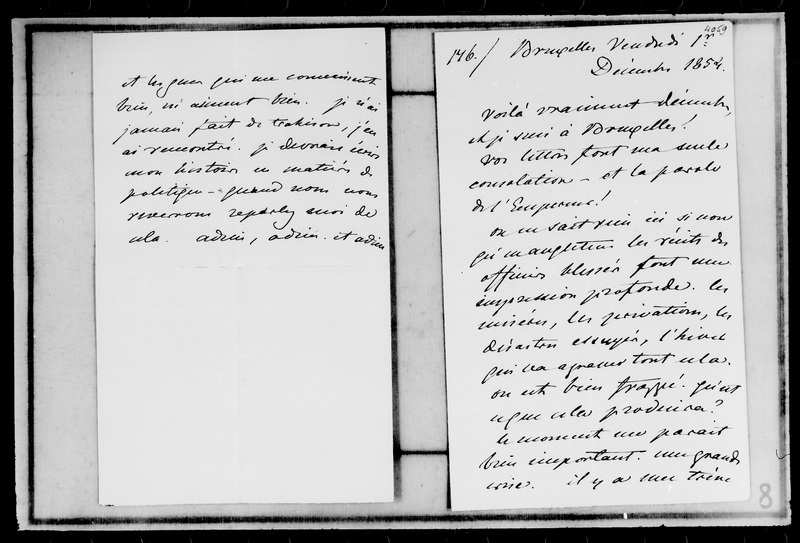 et les gens qui me connaissent
bien, m'aiment bien. je n'ai
jamais fait de trahison, j'en
ai rencontré. je devrais écrire
mon histoire en matière de
politique - quand nous nous
reverrons reparlez moi de
cela. adieu, adieu. et adieu
4059
146./ Bruxelles Vendredi 1er
Décembre 1854.
Voilà vraiment décembre,
et je suis à Bruxelles!
Vos lettres font ma seule
consolation - et la parole
de l'Empereur!
on ne sait rien ici si non
qu'en angleterre les récits des
officiers blessés font une
impression profonde. les
misères, les privations, les
désastres essuyés, l'hiver
qui va aggraver tout cela.
on est bien frappé. qu'est
ce que cela produira?
le moment me parait
bien important. une grande
crise. il y a une trève
8